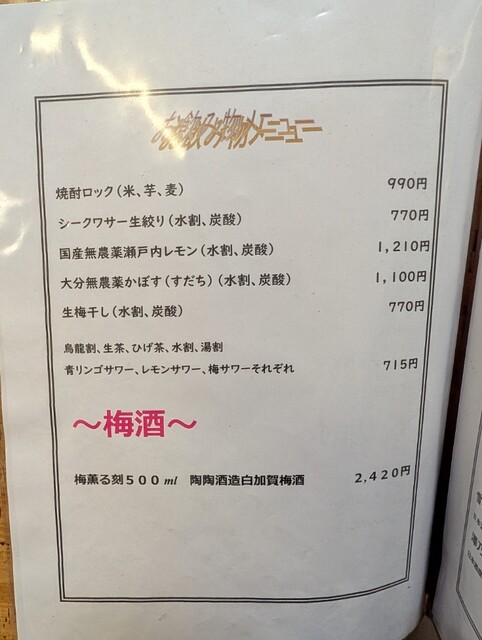 お飲み物メニュー
焼酎ロック(米、芋、麦) 990円
シークワサー生絞り(水割、炭酸) 770円
国産無農薬瀬戸内レモン(水割、炭酸) 1,210円
大分無農薬かぼす(すだち)(水割、炭酸) 1,100円
生梅干し(水割、炭酸) 770円
烏龍割、生茶、ひげ茶、水割、湯割
青リンゴサワー、レモンサワー、梅サワーそれぞれ 715円
～梅酒～
梅薫る刻500ml 陶陶酒造白加賀梅酒 2,420円